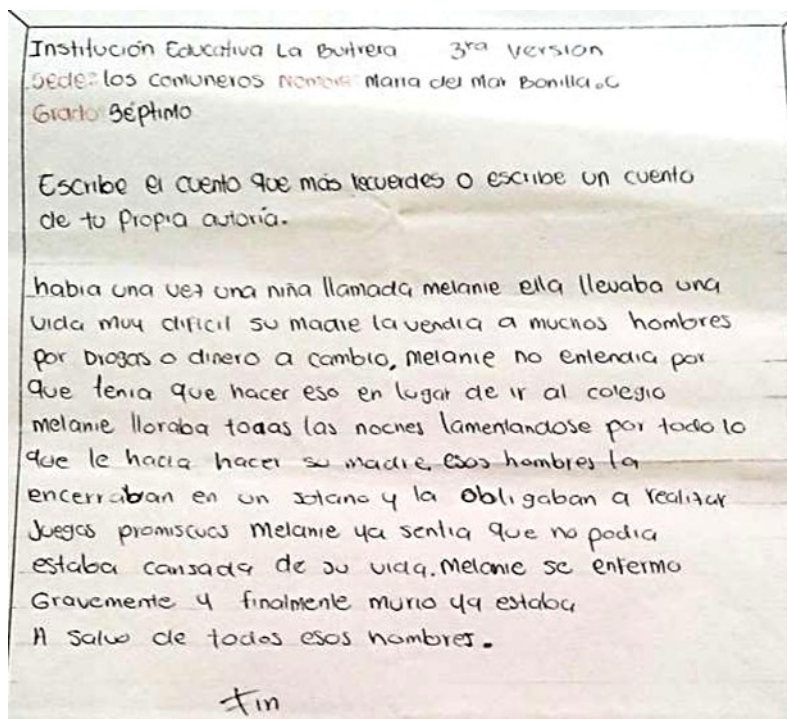 Institución Educativa La Buitrera 3ra version
Sede: los comuneros Nombre Maria del Mar Bonilla.C
Grado Séptimo
Escribe el cuento que más recuerdes o escribe un cuento
de tu Propia autoría.
habia una vez una niña llamada melanie ella llevaba una
vida muy dificil su madre la vendia a muchos hombres
por Drogas o dinero a cambio, melanie no entendia por
que tenia que hacer eso en lugar de ir al colegio
melanie lloraba todas las noches lamentandose por todo lo
que le hacia hacer su madre, esos hombres la
encerraban en un sotano y la obligaban a realizar
Juegos promiscuos Melanie ya sentia que no podia
estaba cansada de su vida. Melanie se enfermo
Gravemente y finalmente murio ya estaba
A salvo de todos esos hombres.
Fin